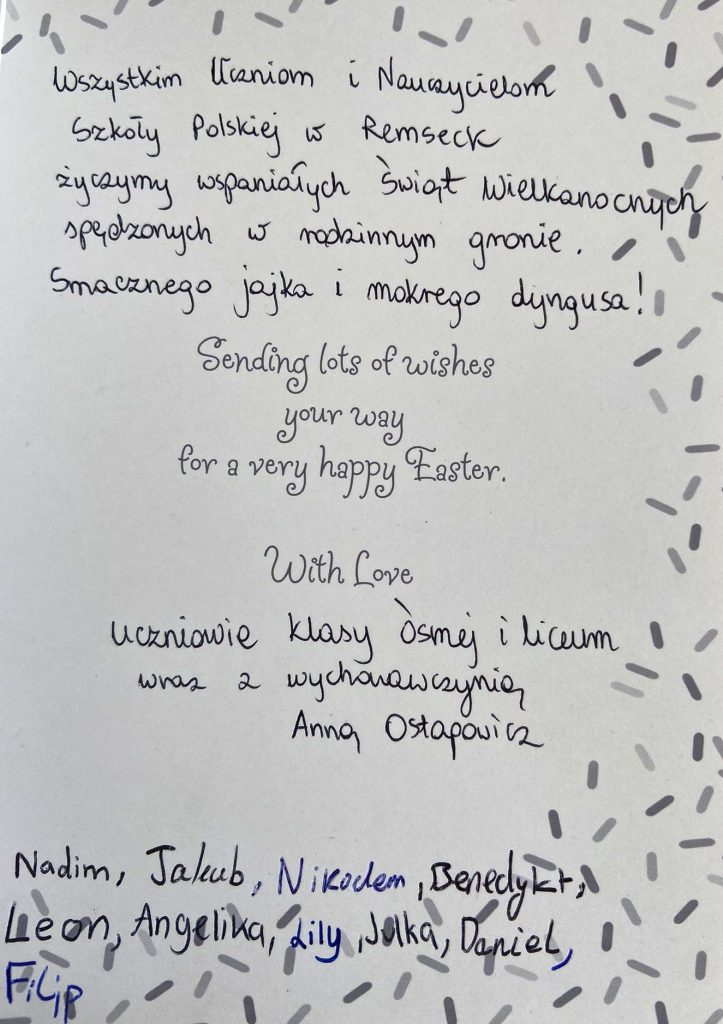 Wszystkim Uczniom i Nauczycielom
Szkoły Polskiej w Remseck
życzymy wspaniałych Świąt Wielkanocnych
spędzonych w rodzinnym gronie.
Smacznego jajka i mokrego dyngusa!
Sending lots of wishes
your way
for a very happy Easter.
With Love
uczniowie klasy ósmej i liceum
wraz z wychowawczynią
Anną Ostapowicz
Nadim, Jakub, Nikodem, Benedykt,
Leon, Angelika, Lily, Julka, Daniel,
Filip